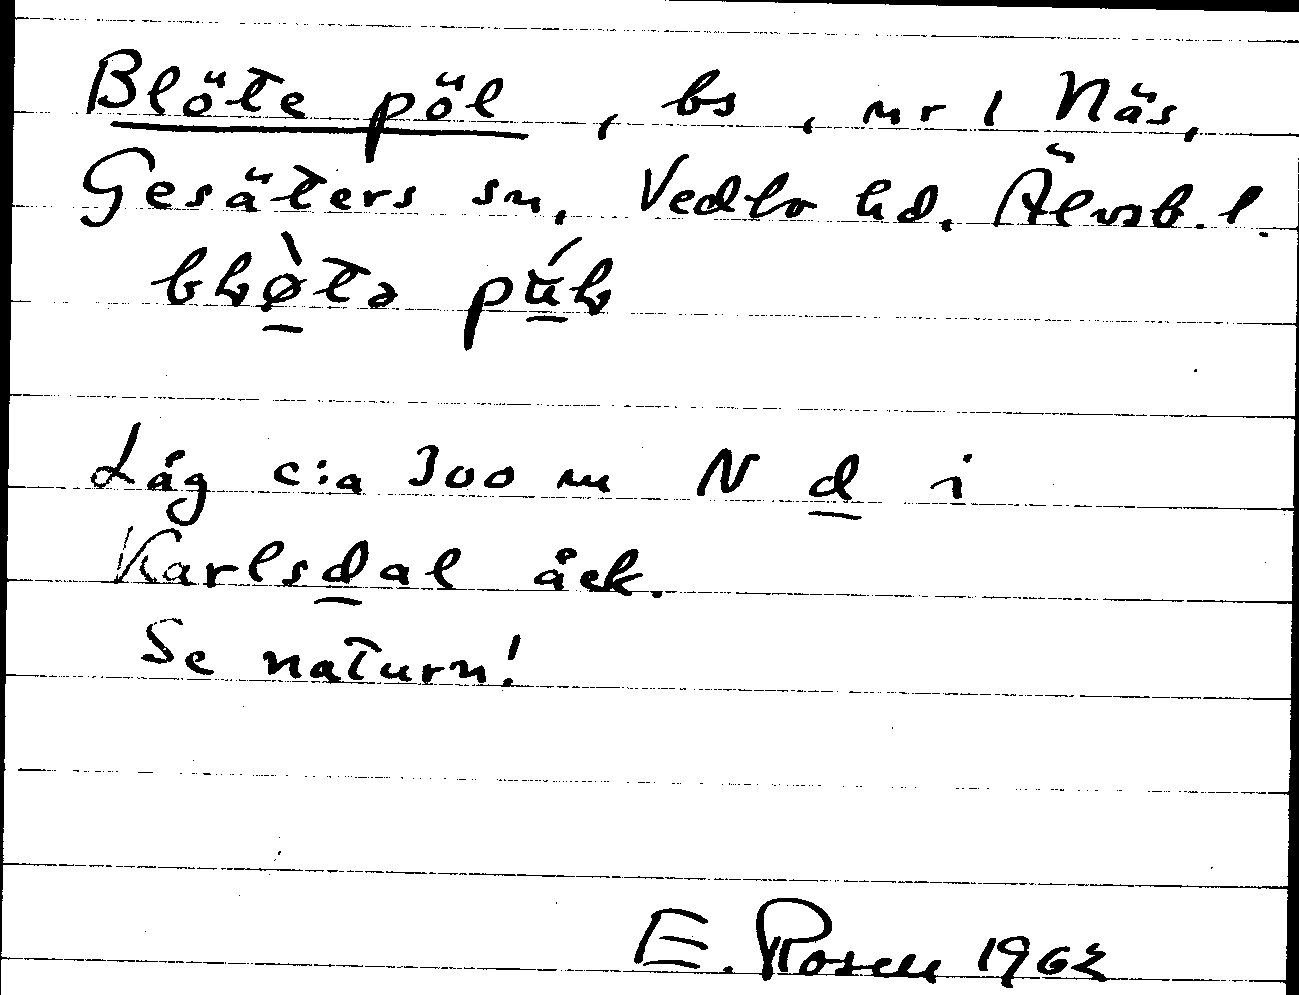 Blöte pöl, bs, nr 1 Näs,
Gesäters sn, Vedbo hd. Älvsb. l.
Låg c:a 300 m N d i
Karlsdal åck.
Se naturn!
E. Rosell 1962